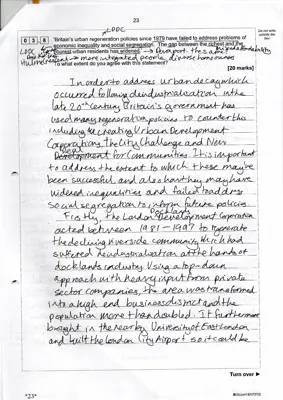 23
LDDC
Do not write outside the box
0 3 8 'Britain's urban regeneration policies since 1979 have failed to address problems of
economic inequality and social segregation. The gap between the richest and the
poorest urban residents has widened.'
To what extent do you agree with this statement?
[20 marks]
more integrated people, diverse homeowners
In order to address urban decay which
occurred following deindustrialisation in the
late 20th Century, Britain's government has
used many regeneration policies to counter this
including the creating Urban Development
Corporations, The City Challenge and New
Deal
Development for Communities. It is important
to address the extent to which these may be
been successful, and also how they may have
widened inequalities and failed to address
social segregation to inform future policies.
Firstly, the London Docklands Development Corporation
acted between 1981-1997 to regenerate
the declining riverside community which had
suffered deindustrialisation at the hands of
docklands industry. Using a top-down
approach with heavy input from private
sector companies, the area was transformed
into a high end business district and the
population more than doubled. It furthermore
brought in the nearby University of East London
and built the London City Airport so it could be
Turn over ►
*23*